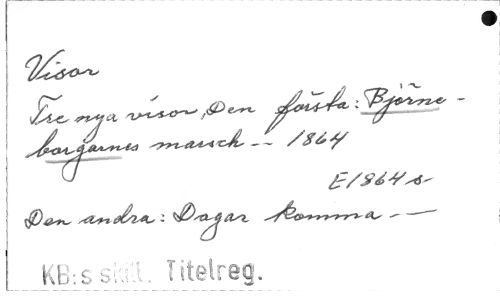 Visor
Tre nya visor, Den första: Björne-
borgarnes marsch -- 1864
E1864 s
Den andra: Dagar komma --
KB:s skill. Titelreg.